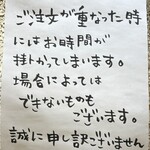 ご注文が重なった時
にはお時間が
掛かってしまいます。
場合によっては
できないものも
ございます。
誠に申し訳ございません